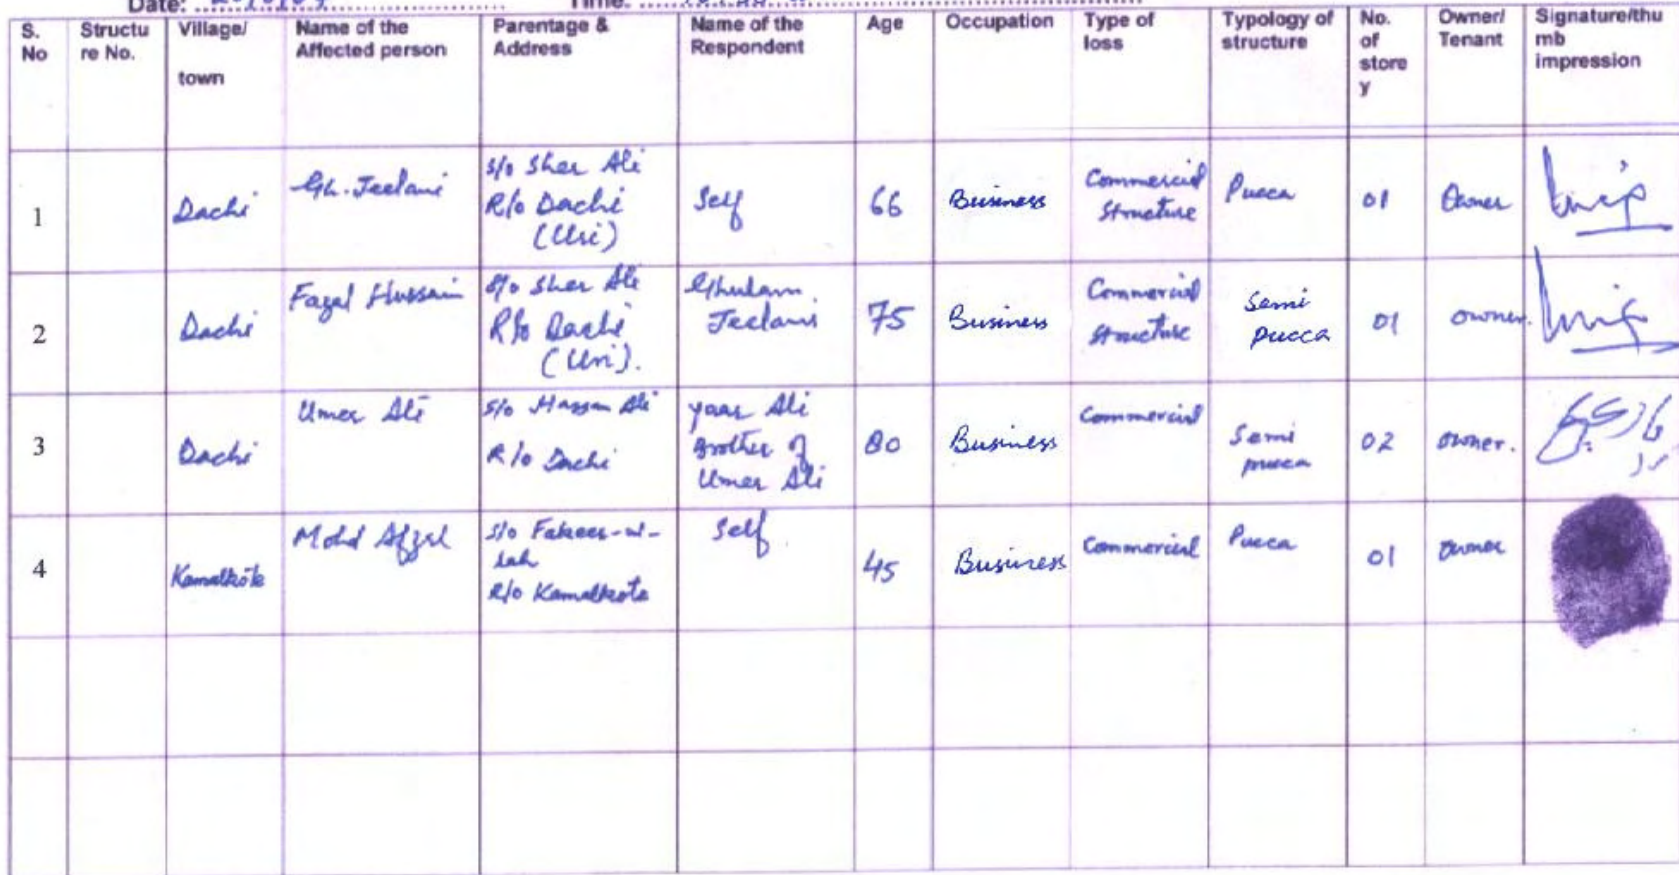 Date:
Time:
S. No	Structu re No.	Village/ town	Name of the Affected person	Parentage & Address	Name of the Respondent	Age	Occupation	Type of loss	Typology of structure	No. of store y	Owner/ Tenant	Signature/thu mb impression
1		Dachi	Gh. Jeelani	S/o Sher Ali R/o Dachi (Uri)	Self	66	Business	Commercial Structure	Pucca	01	Owner
2		Dachi	Fazal Hussain	S/o Sher Ali R/o Dachi (Uri).	Ghulam Jeelani	75	Business	Commercial Structure	Semi pucca	01	owner.
3		Dachi	Umer Ali	S/o Hassan Ali R/o Dachi	yaar Ali Brother of Umer Ali	80	Business	Commercial	Semi pucca	02	owner.
4		Kamalkote	Mohd Afzal	S/o Fakeer-u-lah R/o Kamalkote	Self	45	Business	Commercial	Pucca	01	owner